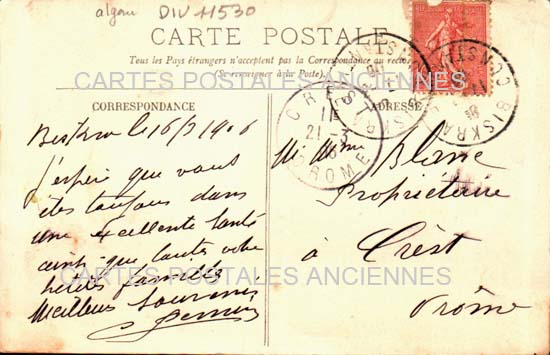 algerie DIV 11530
CARTE POSTALE
Tous les Pays étrangers n'acceptent pas la Correspondance au recto
(Se renseigner à la Poste).
CARTES POSTALES ANCIENNES
CORRESPONDANCE
ADRESSE
CREST
11
21-3
06
DROME
BISKRA
CONSTANTINE
Biskra le 16/3 1906
J'espère que vous
êtes toujours dans
une excellente santé
ainsi que toute votre
petite famille
Meilleur souvenir
M. Mme Blanc
Propriétaire
à Crest
Drôme
CARTES POSTALES ANCIENNES